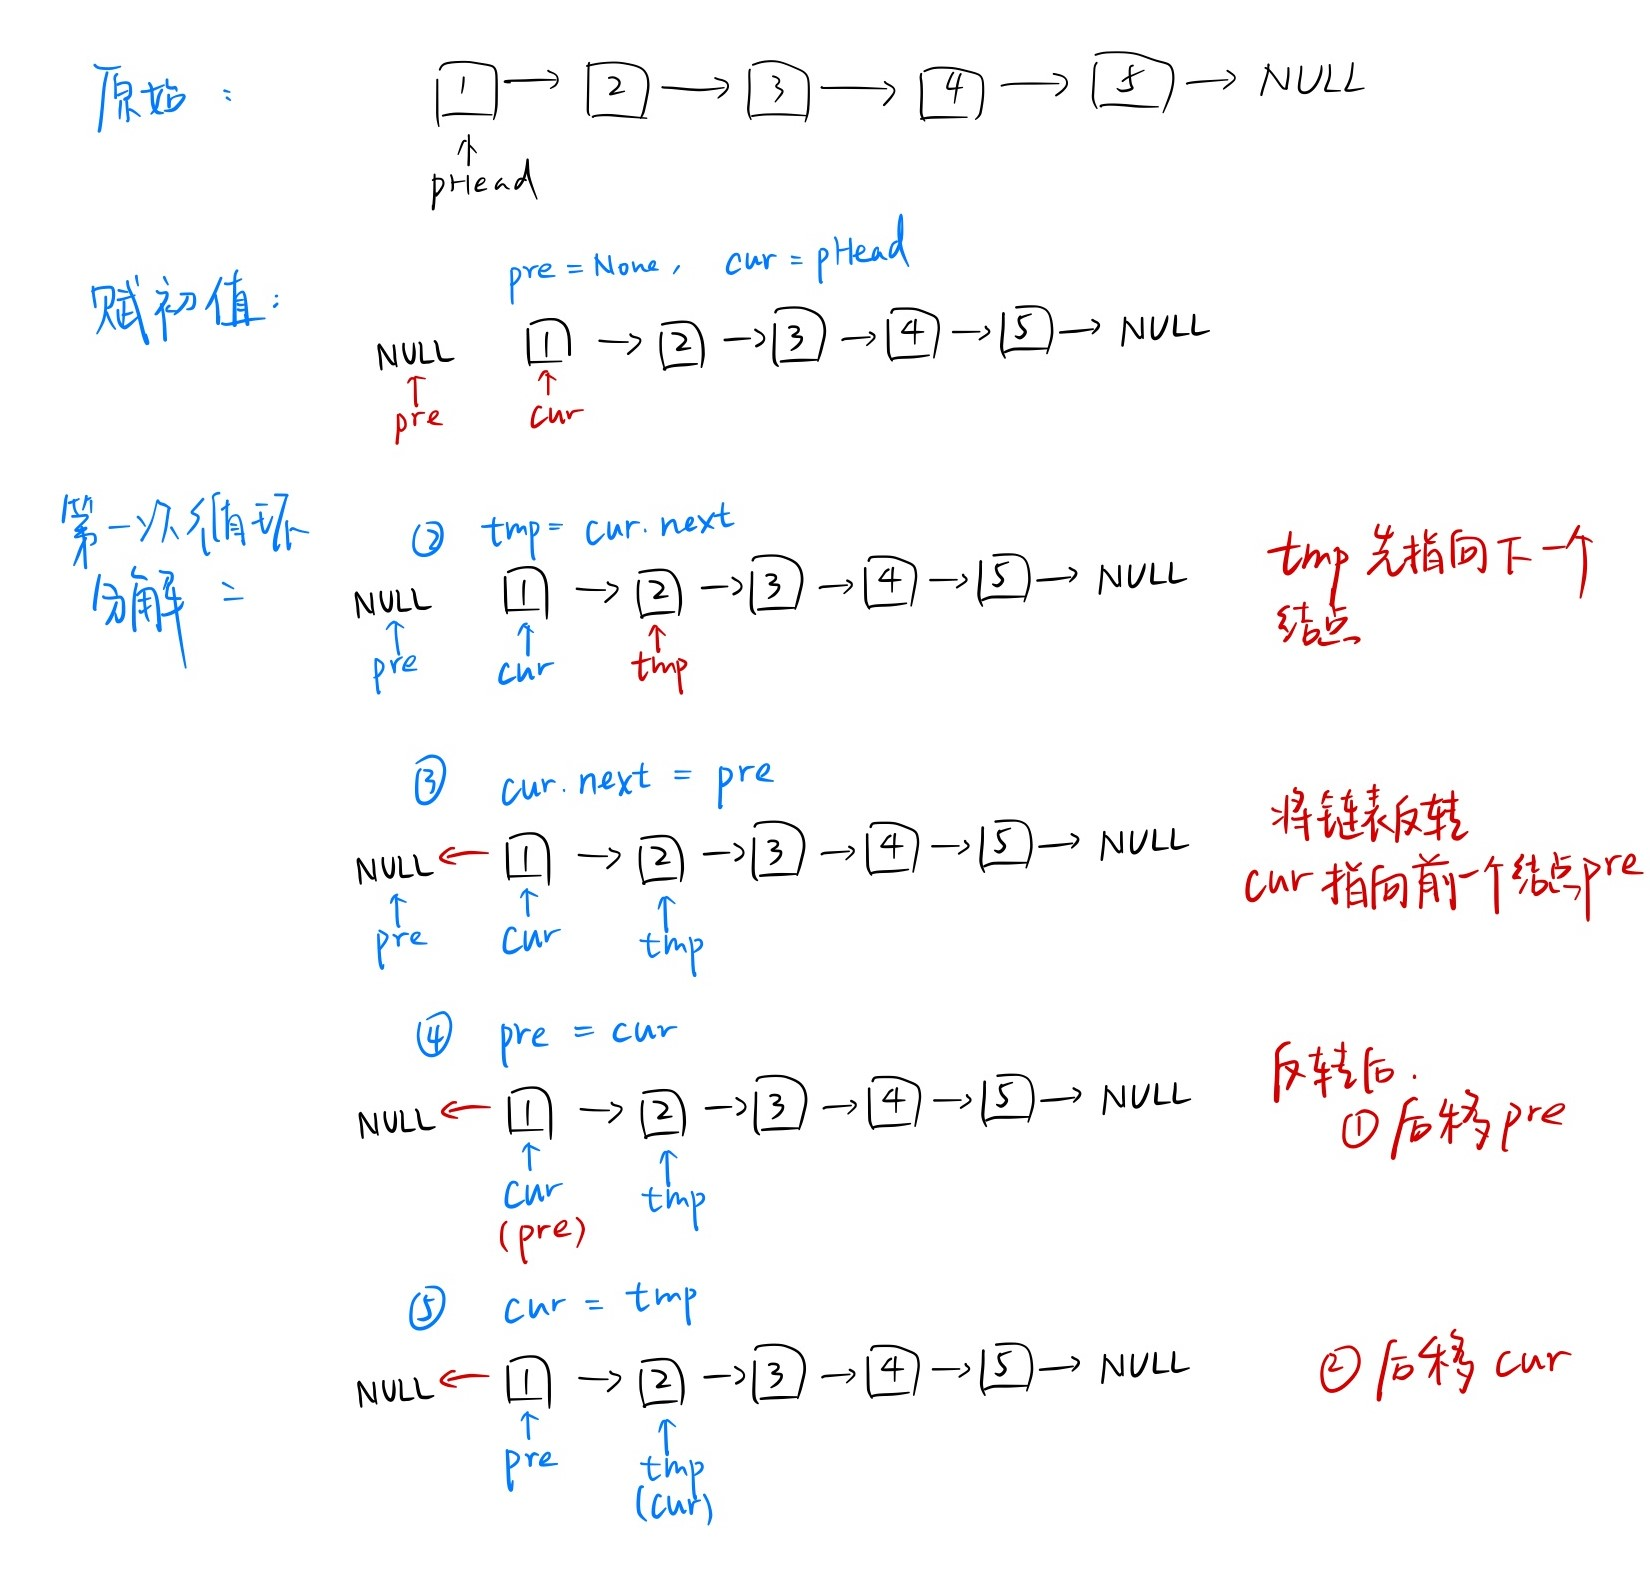 原始：
1 → 2 → 3 → 4 → 5 → NULL
↑
pHead
赋初值：
pre = None， cur = pHead
NULL 1 → 2 → 3 → 4 → 5 → NULL
↑ ↑
pre cur
第一次循环
分解：
② tmp = cur.next
NULL 1 → 2 → 3 → 4 → 5 → NULL
↑ ↑ ↑
pre cur tmp
tmp 先指向下一个
结点
③ cur.next = pre
NULL ← 1 → 2 → 3 → 4 → 5 → NULL
↑ ↑ ↑
pre cur tmp
将链表反转
cur 指向前一个结点pre
④ pre = cur
NULL ← 1 → 2 → 3 → 4 → 5 → NULL
↑ ↑
cur tmp
(pre)
反转后.
① 后移 pre
⑤ cur = tmp
NULL ← 1 → 2 → 3 → 4 → 5 → NULL
↑ ↑
pre tmp
(cur)
② 后移 cur